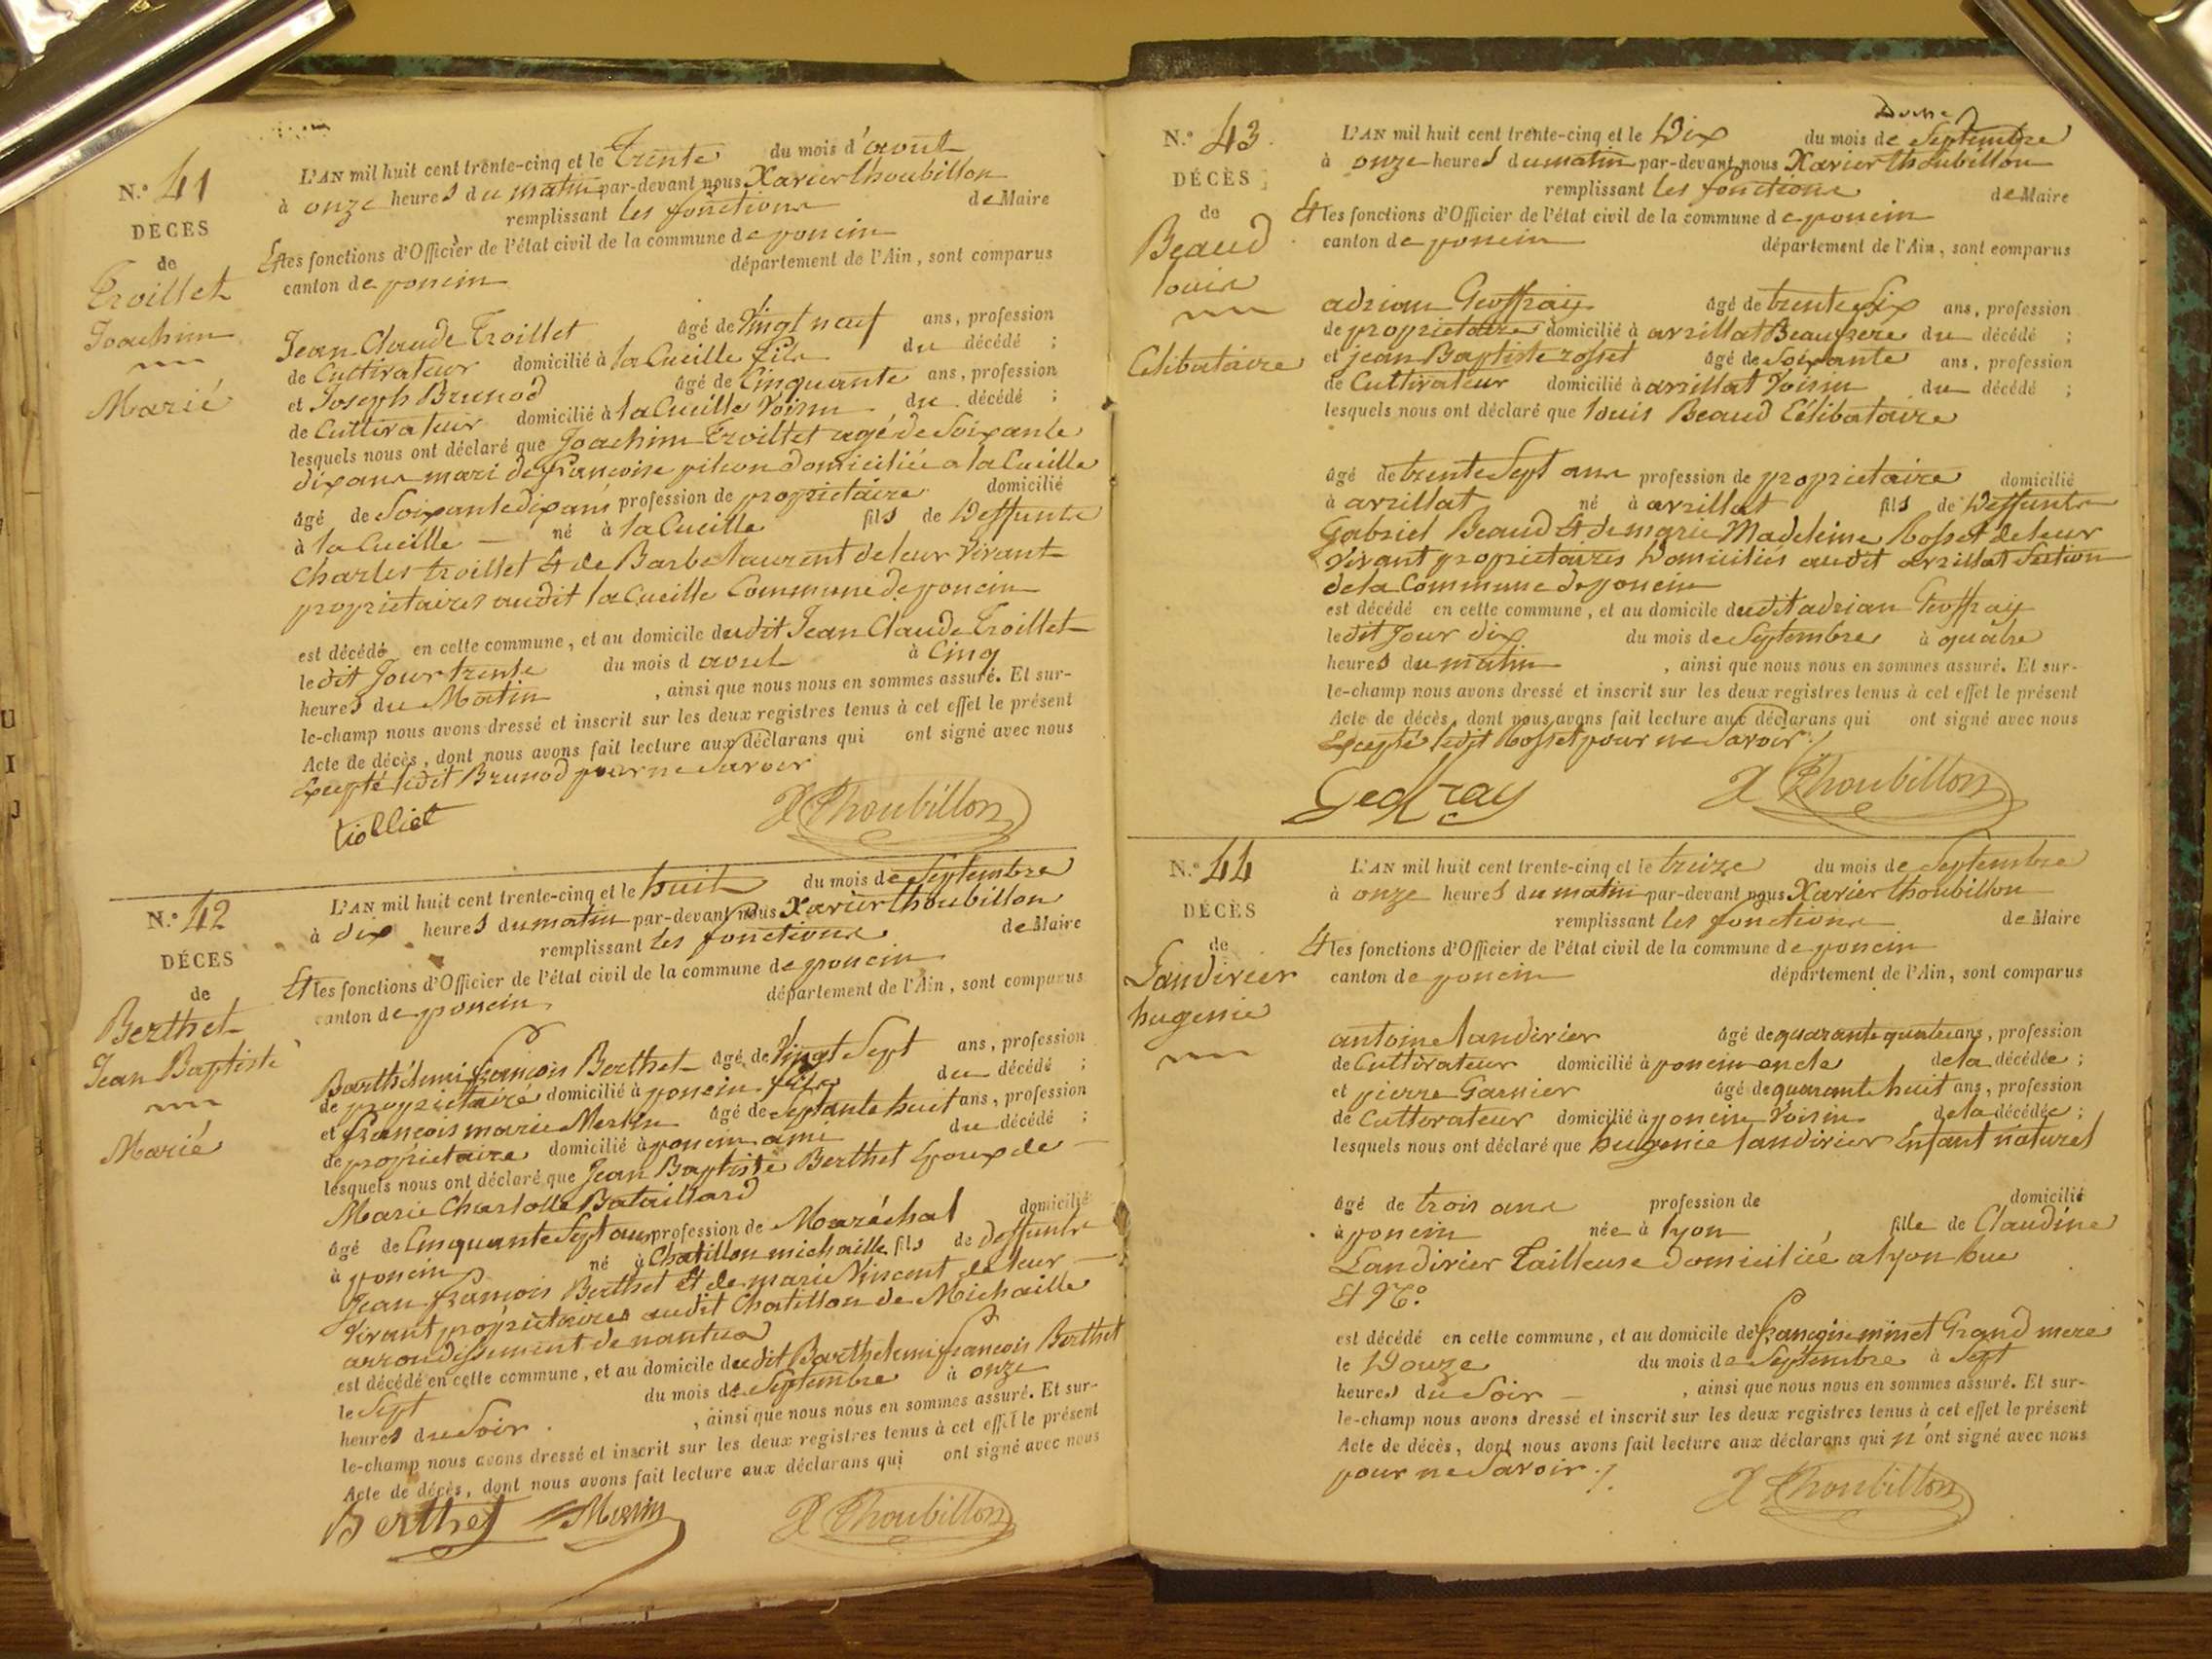 N.º 41
DÉCÈS
de
Troillet
Joachim
Marié
L'AN mil huit cent trente-cinq et le Trente du mois d'aout
à onze heures du matin par-devant nous Xavier thoubillon
remplissant les fonctions de Maire
Et les fonctions d'Officier de l'état civil de la commune de poncin
canton de poncin département de l'Ain, sont comparus
Jean Claude Troillet âgé de Vingt neuf ans, profession
de Cultivateur domicilié à la Cueille fils du décédé ;
et Joseph Brunod âgé de Cinquante ans, profession
de Cultivateur domicilié à la Cueille Voisin du décédé ;
lesquels nous ont déclaré que Joachim Troillet agé de Soixante
dix ans mari de francoise domiciliée a la Cueille
âgé de Soixante dix ans profession de proprietaire domicilié
à la Cueille né à la Cueille fils de Deffunts
Charles troillet Et de Barbe laurent de leur Vivant
proprietaires audit la Cueille Commune de poncin
est décédé en cette commune, et au domicile dudit Jean Claude Troillet
le dit Jour trente du mois d aout à Cinq
heures du Matin , ainsi que nous nous en sommes assuré. Et sur-
le-champ nous avons dressé et inscrit sur les deux registres tenus à cet effet le présent
Acte de décès, dont nous avons fait lecture aux déclarans qui ont signé avec nous
Excepté ledit Brunod pour ne Savoir
tiolliet X Thoubillon
N.º 42
DÉCÈS
de
Berthet
Jean Baptiste
Marié
L'AN mil huit cent trente-cinq et le huit du mois de Septembre
à dix heures du matin par-devant nous Xavier thoubillon
remplissant les fonctions de Maire
Et les fonctions d'Officier de l'état civil de la commune de poncin
canton de poncin département de l'Ain, sont comparus
Barthélemi françois Berthet âgé de Vingt Sept ans, profession
de proprietaire domicilié à poncin fils du décédé ;
et françois marie Merlin âgé de Septante huit ans, profession
de proprietaire domicilié à poncin ami du décédé ;
lesquels nous ont déclaré que Jean Baptiste Berthet Epoux de
Marie Charlotte Bataillard
âgé de Cinquante Sept ans profession de Maréchal domicilié
à poncin né à Chatillon michaille fils de deffunts
Jean françois Berthet Et de marie Vincent de leur
Vivant proprietaires audit Chatillon de Michaille
arrondissement de nantua
est décédé en cette commune, et au domicile dudit Barthelemi françois Berthet
le Sept du mois de Septembre à onze
heures du Soir , ainsi que nous nous en sommes assuré. Et sur-
le-champ nous avons dressé et inscrit sur les deux registres tenus à cet effet le présent
Acte de décès, dont nous avons fait lecture aux déclarans qui ont signé avec nous
Berthet Merlin X Thoubillon
N.º 43
DÉCÈS
de
Beaud
louis
Célibataire
L'AN mil huit cent trente-cinq et le Dix du mois de Septembre
à onze heures du matin par-devant nous Xavier thoubillon
remplissant les fonctions de Maire
Et les fonctions d'Officier de l'état civil de la commune de poncin
canton de poncin département de l'Ain, sont comparus
adrian Geoffray âgé de trente Six ans, profession
de proprietaire domicilié à arzillat Beaufrere du décédé ;
et jean Baptiste rosset âgé de Soixante ans, profession
de Cultivateur domicilié à arzillat Voisin du décédé ;
lesquels nous ont déclaré que louis Beaud Célibataire
âgé de trente Sept ans profession de proprietaire domicilié
à arzillat né à arzillat fils de Deffunts
Gabriel Beaud Et de marie Madeleine Rosset de leur
Vivant proprietaires Domiciliés audit arzillat Section
de la Commune de poncin
est décédé en cette commune, et au domicile dudit adrian Geoffray
le dit Jour dix du mois de Septembre à quatre
heures du matin , ainsi que nous nous en sommes assuré. Et sur-
le-champ nous avons dressé et inscrit sur les deux registres tenus à cet effet le présent
Acte de décès, dont nous avons fait lecture aux déclarans qui ont signé avec nous
Excepté ledit Rosset pour ne Savoir ./
Geofray X Thoubillon
N.º 44
DÉCÈS
de
Landirier
hugenie
L'AN mil huit cent trente-cinq et le treize du mois de Septembre
à onze heures du matin par-devant nous Xavier thoubillon
remplissant les fonctions de Maire
Et les fonctions d'Officier de l'état civil de la commune de poncin
canton de poncin département de l'Ain, sont comparus
antoine landirier âgé de quarante quatre ans, profession
de Cultivateur domicilié à poncin oncle de la décédée ;
et pierre Garnier âgé de quarante huit ans, profession
de Cultivateur domicilié à poncin Voisin de la décédée ;
lesquels nous ont déclaré que hugenie landirier Enfant naturel
âgé de trois ans profession de domicilié
à poncin née à lyon fille de Claudine
Landirier Tailleuse Domiciliée a lyon Rue
Et Nº.
est décédé en cette commune, et au domicile de françoise minet Grand mere
le Douze du mois de Septembre à Sept
heures du Soir , ainsi que nous nous en sommes assuré. Et sur-
le-champ nous avons dressé et inscrit sur les deux registres tenus à cet effet le présent
Acte de décès, dont nous avons fait lecture aux déclarans qui n'ont signé avec nous
pour ne Savoir ./.
X Thoubillon